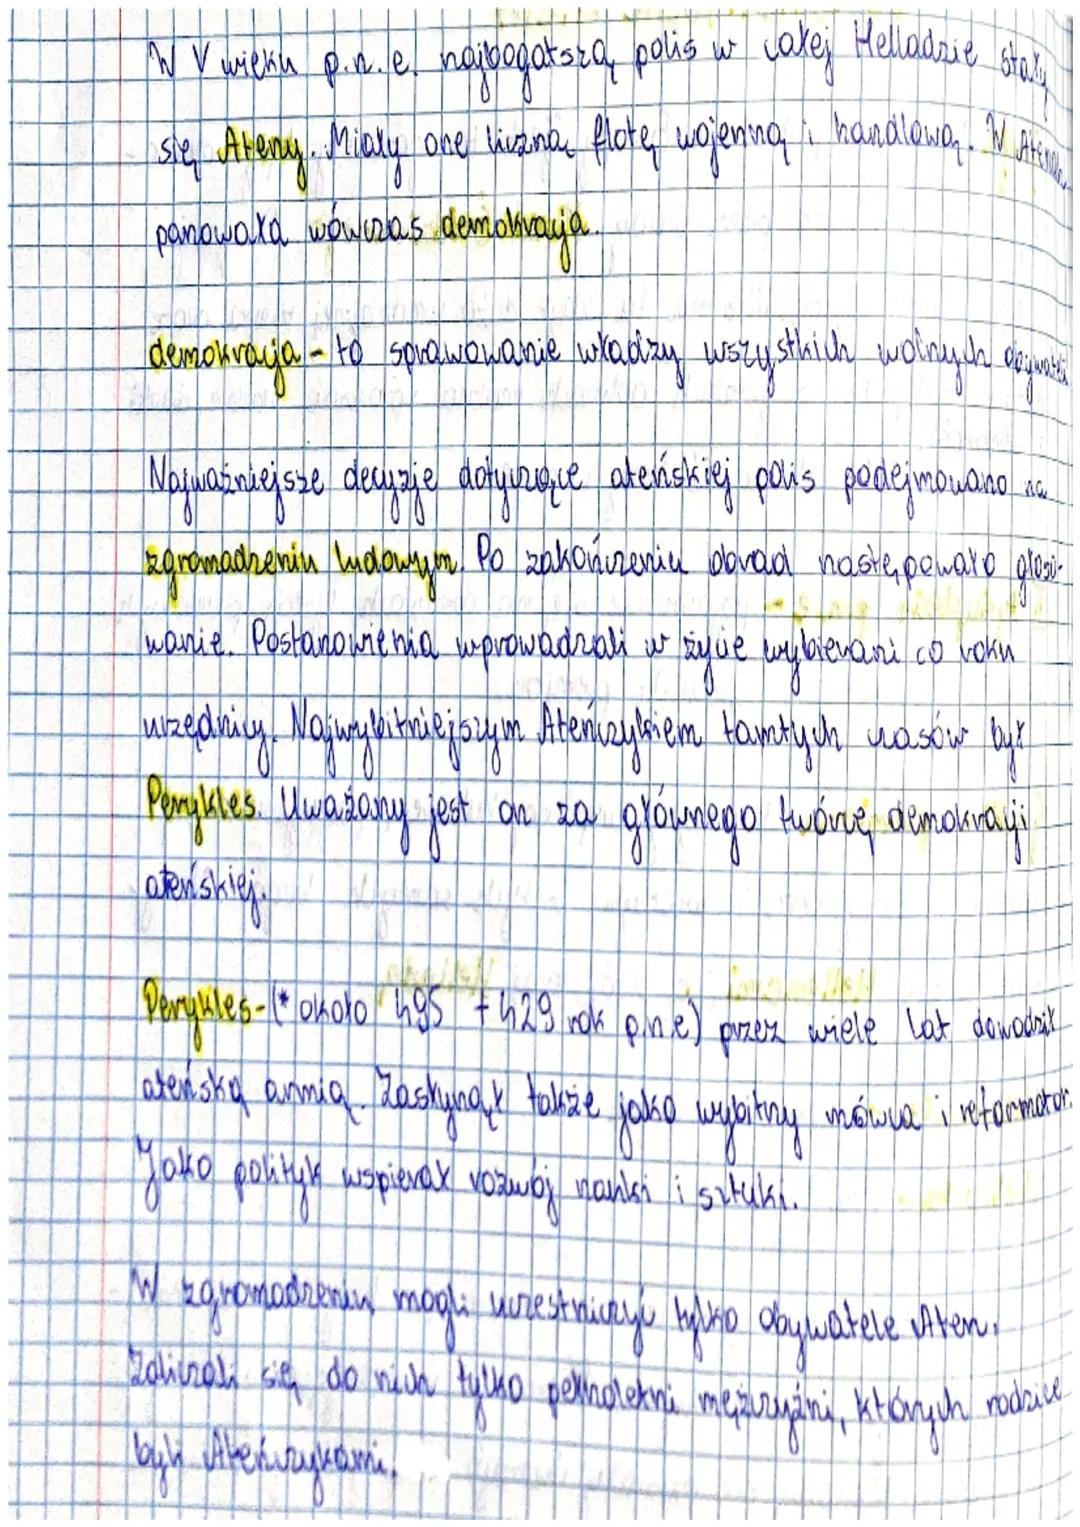 W V wieku p.n.e. najbogatszą polis w całej Helladzie stały
się Ateny. Miały one liczną flotę wojenną i handlową. W Atenach
panowała wówczas demokracja.
demokracja - to sprawowanie władzy wszystkich wolnych obywateli
Najważniejsze decyzje dotyczące ateńskiej polis podejmowano na
zgromadzeniu ludowym. Po zakończeniu obrad następowało głoso-
wanie. Postanowienia wprowadzali w życie wybierani co roku
urzędnicy. Najwybitniejszym Ateńczykiem tamtych czasów był
Perykles. Uważany jest on za głównego twórcę demokracji
ateńskiej.
Perykles - (* około 495 + 429 rok p.n.e) przez wiele lat dowodził
ateńską armią. Zasłynął także jako wybitny mówca i reformator.
Jako polityk wspierał rozwój nauki i sztuki.
W zgromadzeniu mogli uczestniczyć tylko obywatele Aten.
Zaliczali się do nich tylko pełnoletni mężczyźni, których rodzice
byli Ateńczykami.